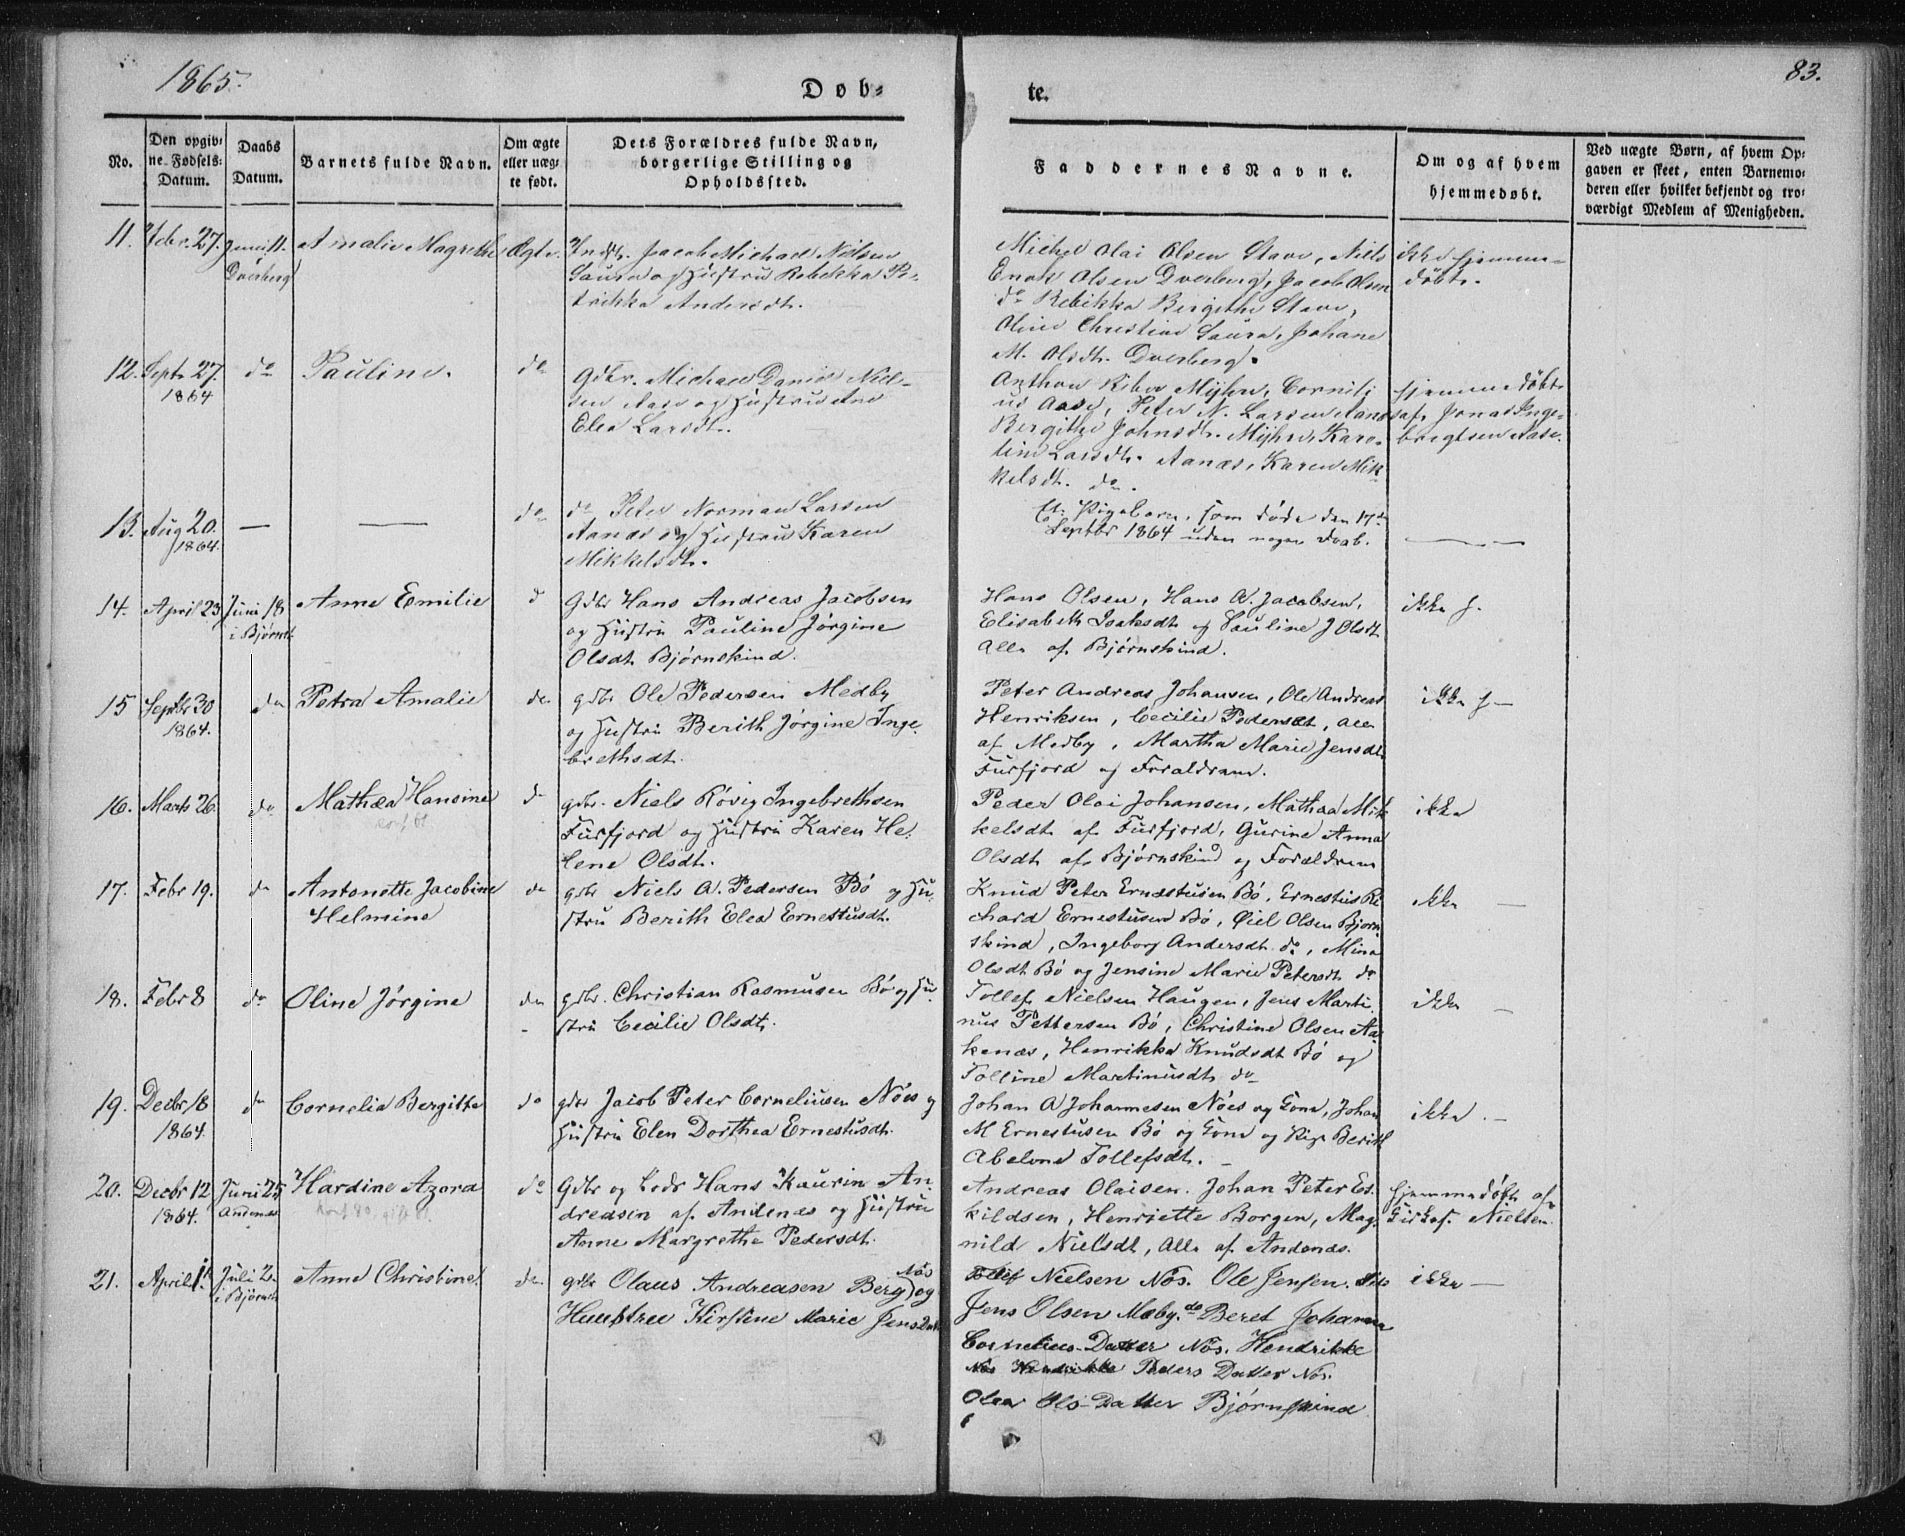 1865.
Døb-
te.
83.
No.
Den opgiv-
ne Fødsels-
Datum.
Daabs
Datum.
Barnets fulde Navn.
Om ægte
eller uæg-
te født.
Dets Forældres fulde Navn,
borgerlige Stilling og
Opholdssted.
Faddernes Navne.
Om og af hvem
hjemmedøbt.
Ved uægte Børn, af hvem Op-
gaven er skeet, enten Barnemo-
deren eller hvilket bekjendt og tro-
værdigt Medlem af Menigheden.
11. Febr. 27. Juni 11. Amalie Magrethe Ægte. Indst. Jacob Michael Nilsen
Dverberg
Saura og Hustru Rebekka Pe-
trikka Andersdt.
Michel Olai Olsen Stave, Niels
Enok Olsen Dverberg, Jacob Olsen
do Rebikka Bergithe Stave,
Oline Christine Saura, Johane
M. Olsdt. Dverberg.
ikke hjemme-
døbt.
12. Septr 27. do Pauline. do
1864
Gdbr. Michael Daniel Niel-
sen Aase og Hustru Ane
Elea Larsdt.
Anthon Riber Myhre, Corneli
us Aase, Peter N. Larsen Aanæs
Bergithe Johnsdt. Myhre, Karo-
line Larsdt. Aanæs, Karen Mik-
kelsdt. do.
hjemmedøbt
af Jonas Inge-
brigtsen Aase.
13. Aug 20. — — do
1864.
do Peter Norman Larsen
Aanæs og Hustru Karen
Mikkelsdt.
Et Pigebarn, som døde den 17de
Septbr 1864 uden nogen Daab.
—
14. April 23 Juni 18 Anne Emilie d
i Bjørnsk.
Gdbr Hans Andreas Jacobsen
og Hustru Pauline Jørgine
Olsdt. Bjørnskind.
Hans Olsen, Hans A. Jacobsen,
Elisabeth Isaksdt og Pauline J Olsdt
alle af Bjørnskind.
ikke h.
15 Septbr 30 do Petra Amalie do
1864.
gdbr Ole Pedersen Medby
og Hustru Berith Jørgine Inge
brethsdt.
Peter Andreas Johansen, Ole Andreas
Henriksen, Cecilie Pedersdt, alle
af Medby, Martha Marie Jensdt
Furfjord og Forældrene.
ikke h —
16. Marts 26. do Mathæa Hansine d
gdbr. Niels Røvig Ingebrethsen
Furfjord og Hustru Karen He-
lene Olsdt.
Peder Olai Johansen, Mathæa Mik
kelsdt af Furfjord, Gurine Anna
Olsdt af Bjørnskind og Forældrene
ikke
17. Febr 19. do Antonette Jacobine do
Helmine
gdbr Niels A. Pedersen Bø og Hu-
stru Berith Elea Ernestusdt.
Knud Peter Ernestusen Bø, Ernestus Ri
chard Ernestusen Bø, Øiel Olsen Bjørn
skind, Ingeborg Andersdt do, Mina
Olsdt Bø og Jensine Marie Petersdt do
ikke —
18. Febr 8 do Oline Jørgine do
gdbr. Christian Rasmusen Bø og Hu-
stru Cecilie Olsdt.
Tollef Nielsen Haugen, Jens Marti
nus Pettersen Bø, Christine Olsen Aa-
kenæs, Henrikka Knudsdt Bø og
Tolline Martinusdt do
ikke —
19. Decbr 18 do Cornelia Bergitha do
1864.
gdbr Jacob Peter Corneliusen Nöes og
Hustru Elen Dorthea Ernestusdt.
Johan A Johannesen Nöes og Kone, Johan
M Ernestusen Bø og Kone og Pige Berith
Abelone Tollefsdt.
ikke. —
20. Decbr 12 Juni 25 Hardine Azora do
1864. Andenæs
Gdbr og Lods Hans Kaurin An-
dreasen af Andenæs og Hustru
Anne Margrethe Pedersdt.
Andreas Olaisen. Johan Peter Es-
kildsen, Henriette Borgen, Mag-
nild Nielsdt, alle af Andenæs.
hjemmedøbt af
Kirkes. Nielsen.
21. April 1 Juli 2. Anne Christine do
i Bjørnsk
gdbr Olaus Andreasen Berg Nös og
Huustru Kirstine Marie Jens Datt
Tollef Nielsen Nös. Ole Jensen. dito
Jens Olsen Mæby. do Beret Johanna
Cornelius-Datter Nös. Hendrikke
Peders Datter Nös.
Olea Ols-Datter Bjørnskind
ikke —